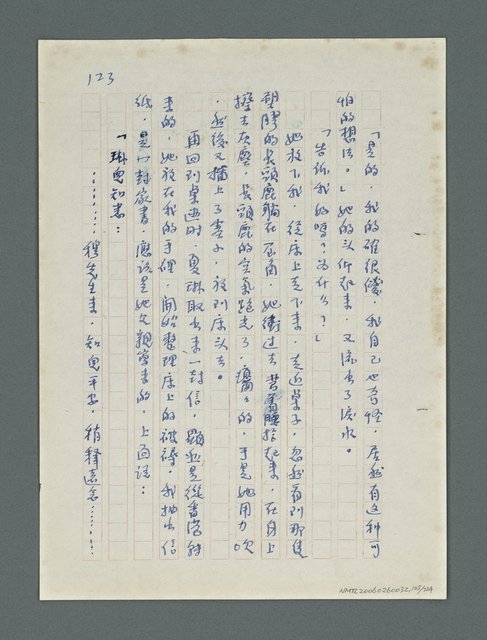 123
「是的，我的確很傻，我自己也奇怪，居然有这种可
怕的想法。」她的头仰起來，又流出了淚水。
「告訴我好嗎？为什么？」
她放下我，從床上走下來，走近桌子，忽然看到那隻
塑膠的長頸鹿躺在屋角，她衝过去 拾起來，在身上
擦去灰塵，長頸鹿的空氣跑走了，癟癟的，于是她用力吹
，然後又插上了塞子，放到床头去。
再回到桌边时，夏琳取出來一封信，顯然是從香港转
來的，她放在我的手裡，開始整理床上的被褥，我抽出信
纸，是一封家書，應該是她父親寫來的，上面説：
「琳兒知悉：
………穆先生來，知兒平安，稍釋遠念………
NMTL20060260032,125/324